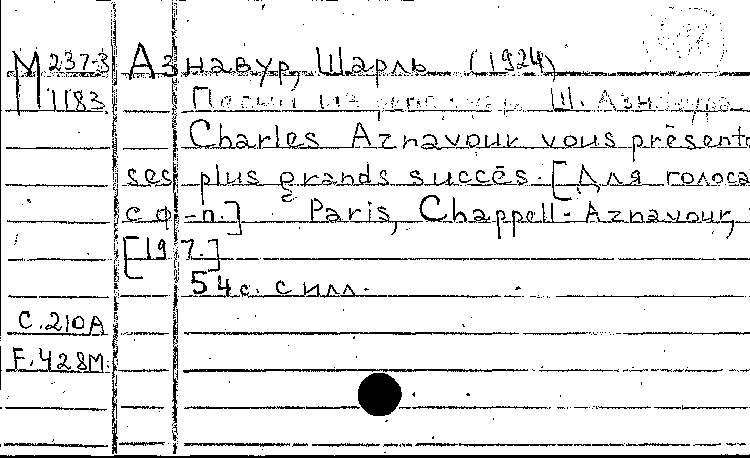 М 237-3 Азнавур, Шарль (1924)
1183 Песни из репертуара Ш. Азнавура
Charles Aznavour vous présente
ses plus grands succès. [Для голоса
с ф-п.] Paris, Chappell-Aznavour,
[197.]
54 с. с илл.
C.210A
F.428M.